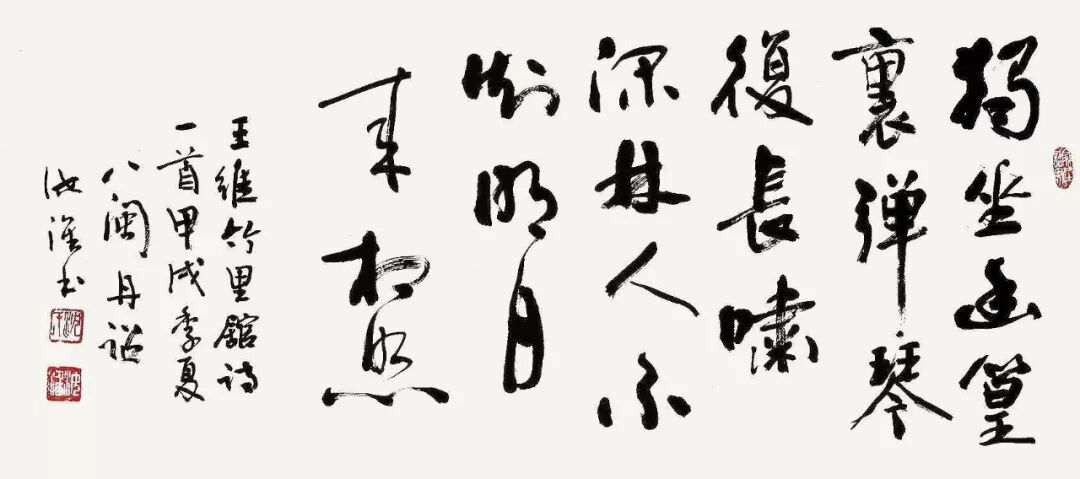 獨坐幽篁
裏弹琴
復長嘯
深林人不
知明月
来相照
王維竹里館诗
一首甲戌季夏
八閩丹诏
汝淮书